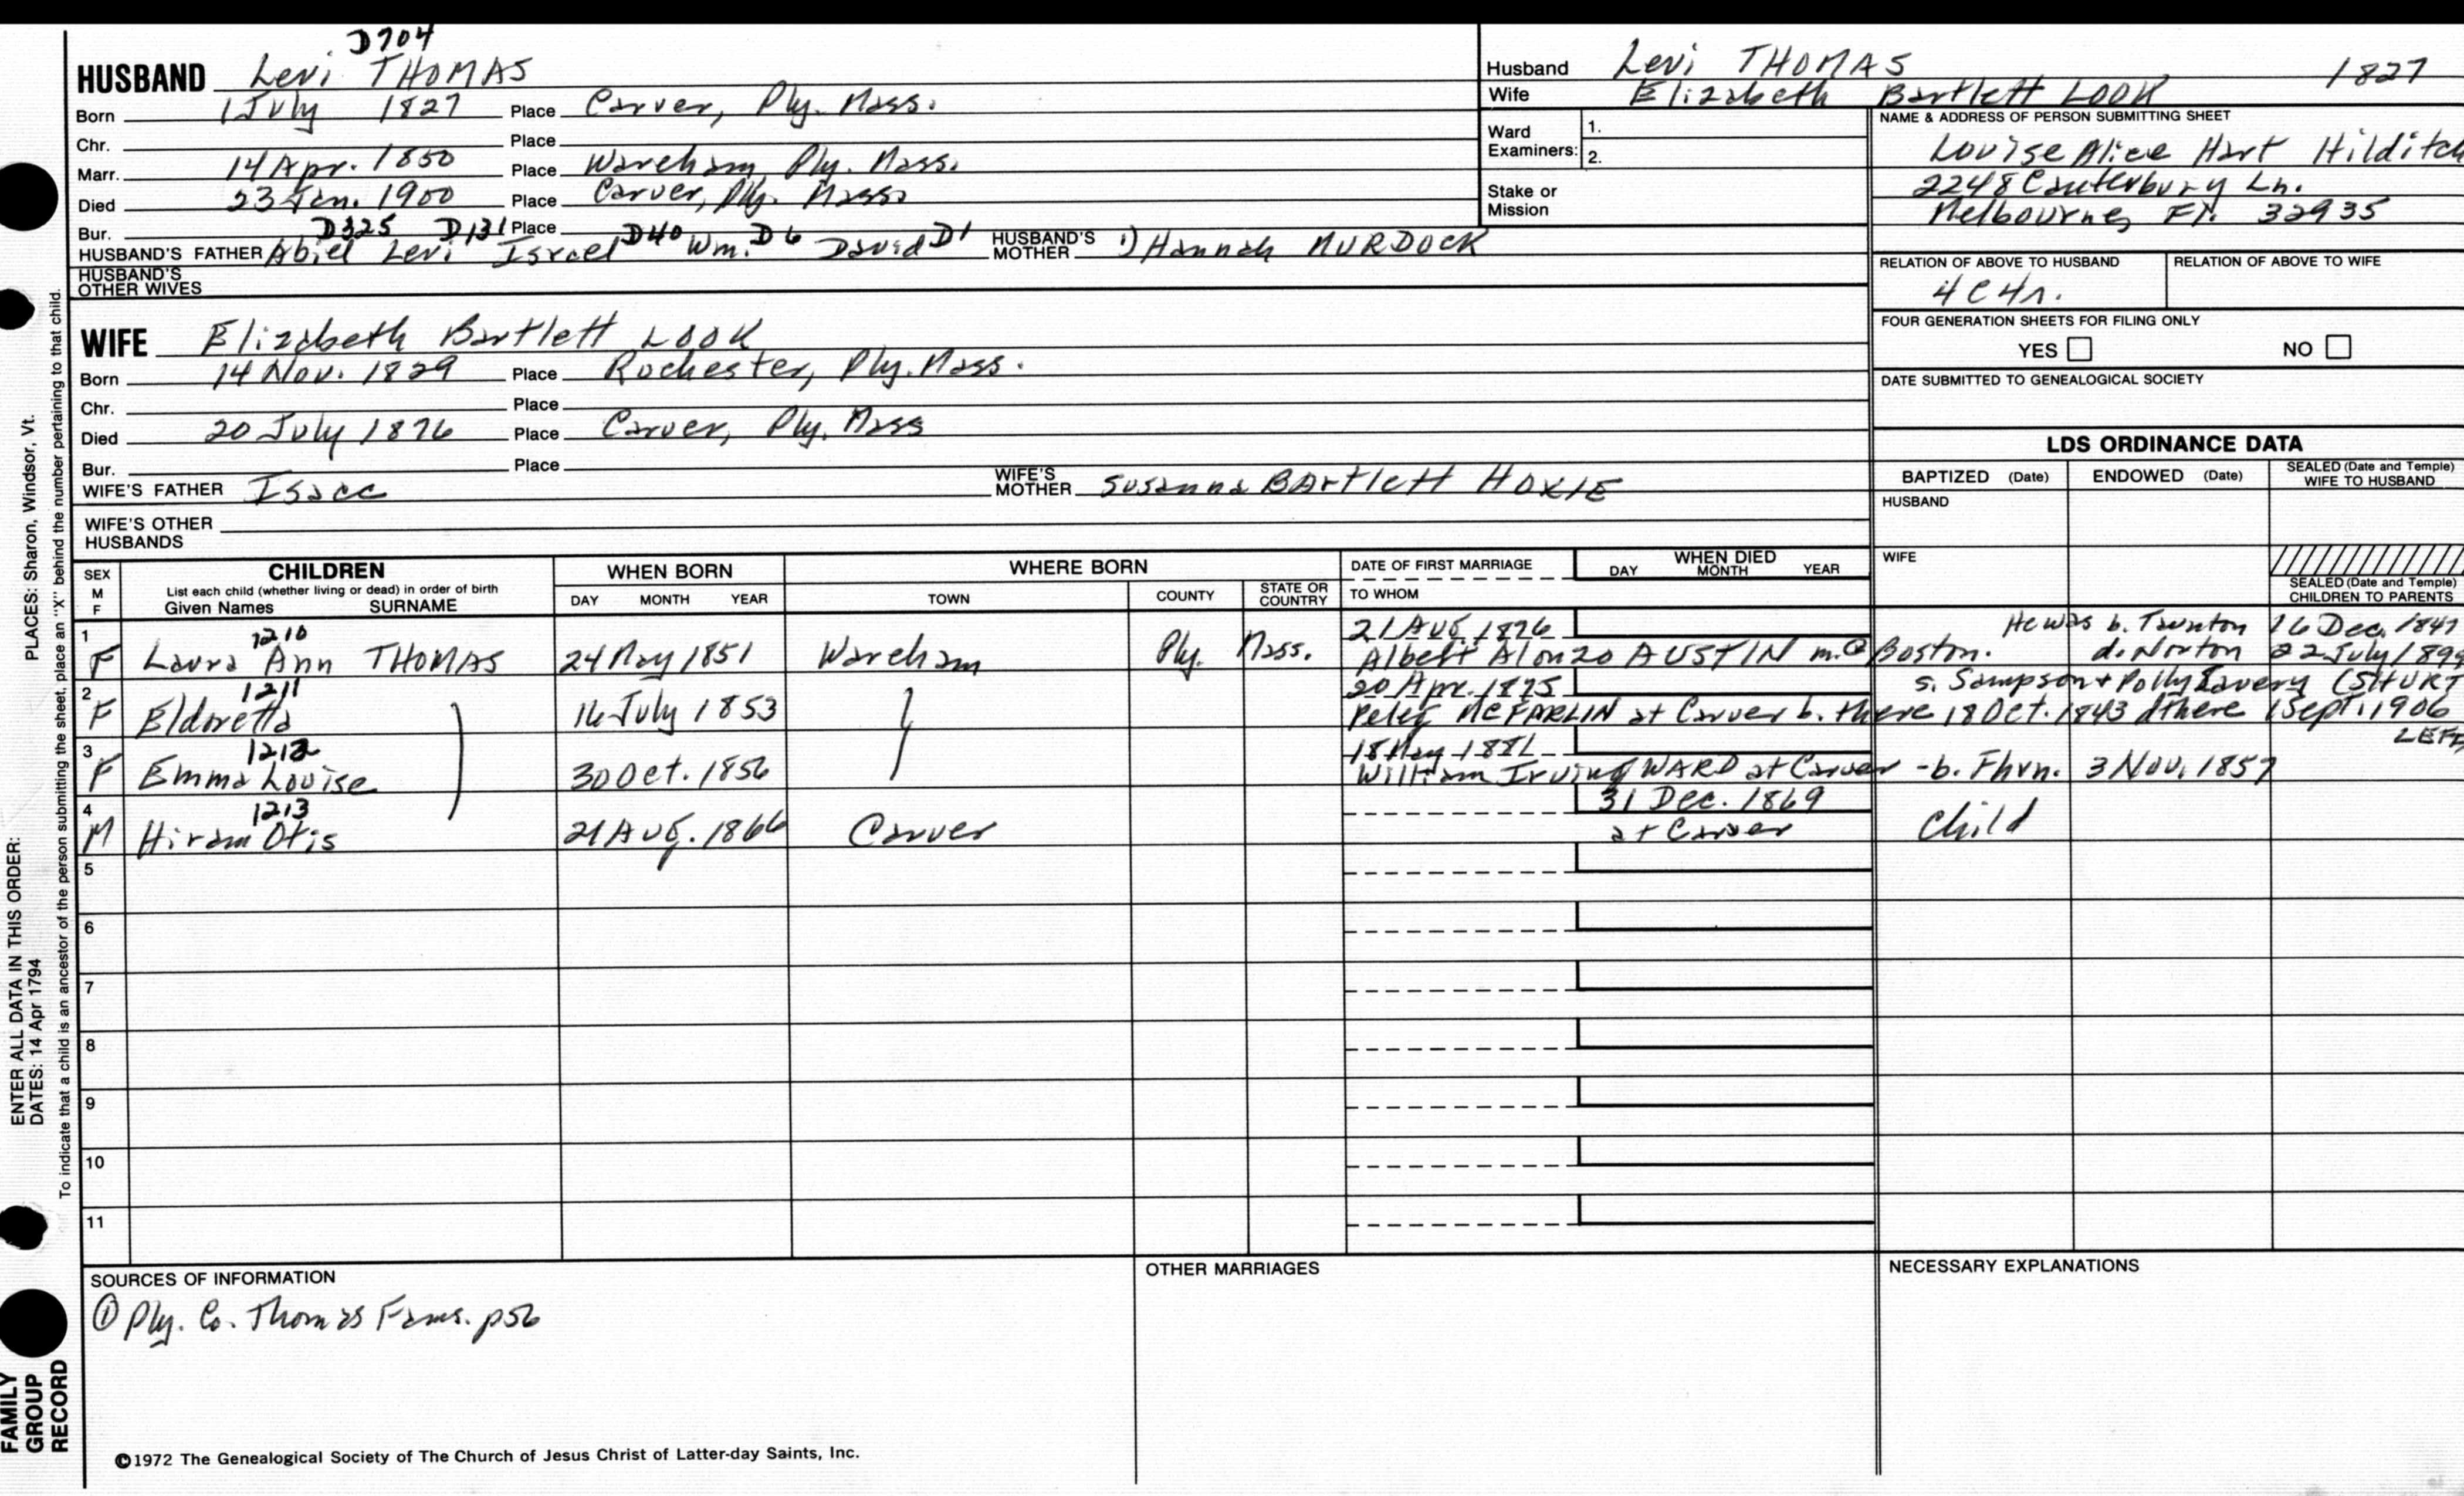 D704
HUSBAND Levi THOMAS
Born 1 July 1827 Place Carver, Ply. Mass.
Chr. Place
Marr. 14 Apr. 1850 Place Wareham, Ply. Mass.
Died 23 Jan. 1900 Place Carver, Ply. Mass.
Bur. Place
D325 D131 D40 D6 D1
HUSBAND'S FATHER Abiel Levi Israel Wm. David HUSBAND'S MOTHER 1) Hannah MURDOCK
HUSBAND'S OTHER WIVES
WIFE Elizabeth Bartlett LOOK
Born 14 Nov. 1829 Place Rochester, Ply. Mass.
Chr. Place
Died 20 July 1876 Place Carver, Ply. Mass
Bur. Place
WIFE'S FATHER Isacc WIFE'S MOTHER Susanna BArtlett HOXIE
WIFE'S OTHER HUSBANDS
Husband Levi THOMAS 1827
Wife Elizabeth Bartlett LOOK
Ward Examiners: 1.
2.
Stake or Mission
NAME & ADDRESS OF PERSON SUBMITTING SHEET
Louise Alice Hart Hilditch
2248 Canterbury Ln.
Melbourne, Fl. 32935
RELATION OF ABOVE TO HUSBAND RELATION OF ABOVE TO WIFE
4C4r.
FOUR GENERATION SHEETS FOR FILING ONLY
YES NO
DATE SUBMITTED TO GENEALOGICAL SOCIETY
LDS ORDINANCE DATA
BAPTIZED (Date) ENDOWED (Date) SEALED (Date and Temple) WIFE TO HUSBAND
HUSBAND
WIFE
SEALED (Date and Temple) CHILDREN TO PARENTS
SEX M F CHILDREN WHEN BORN WHERE BORN DATE OF FIRST MARRIAGE WHEN DIED
List each child (whether living or dead) in order of birth
Given Names SURNAME DAY MONTH YEAR TOWN COUNTY STATE OR COUNTRY TO WHOM DAY MONTH YEAR
1 1210 21 Aug. 1876 He was b. Taunton 16 Dec. 1847
F Laura Ann THOMAS 24 May 1851 Wareham Ply. Mass. Albert Alonzo AUSTIN m.@ Boston. d. Norton 22 July 1899
2 1211 20 Apr. 1875 s. Sampson + Polly (SHURT
F Eldoretta 16 July 1853 Peleg McFARLIN at Carver b. there 18 Oct. 1843 d there 1 Sept. 1906
3 1212 18 May 1881
F Emma Louise 30 Oct. 1856 William Irving WARD at Carver -b. Fhvn. 3 Nov. 1857
4 1213 31 Dec. 1869
M Hiram Otis 21 Aug. 1866 Carver at Carver Child
5
6
7
8
9
10
11
SOURCES OF INFORMATION OTHER MARRIAGES NECESSARY EXPLANATIONS
① Ply. Co. Thomas Fams. p56
©1972 The Genealogical Society of The Church of Jesus Christ of Latter-day Saints, Inc.
FAMILY GROUP RECORD
ENTER ALL DATA IN THIS ORDER:
DATES: 14 Apr 1794 PLACES: Sharon, Windsor, Vt.
To indicate that a child is an ancestor of the person submitting the sheet, place an "X" behind the number pertaining to that child.